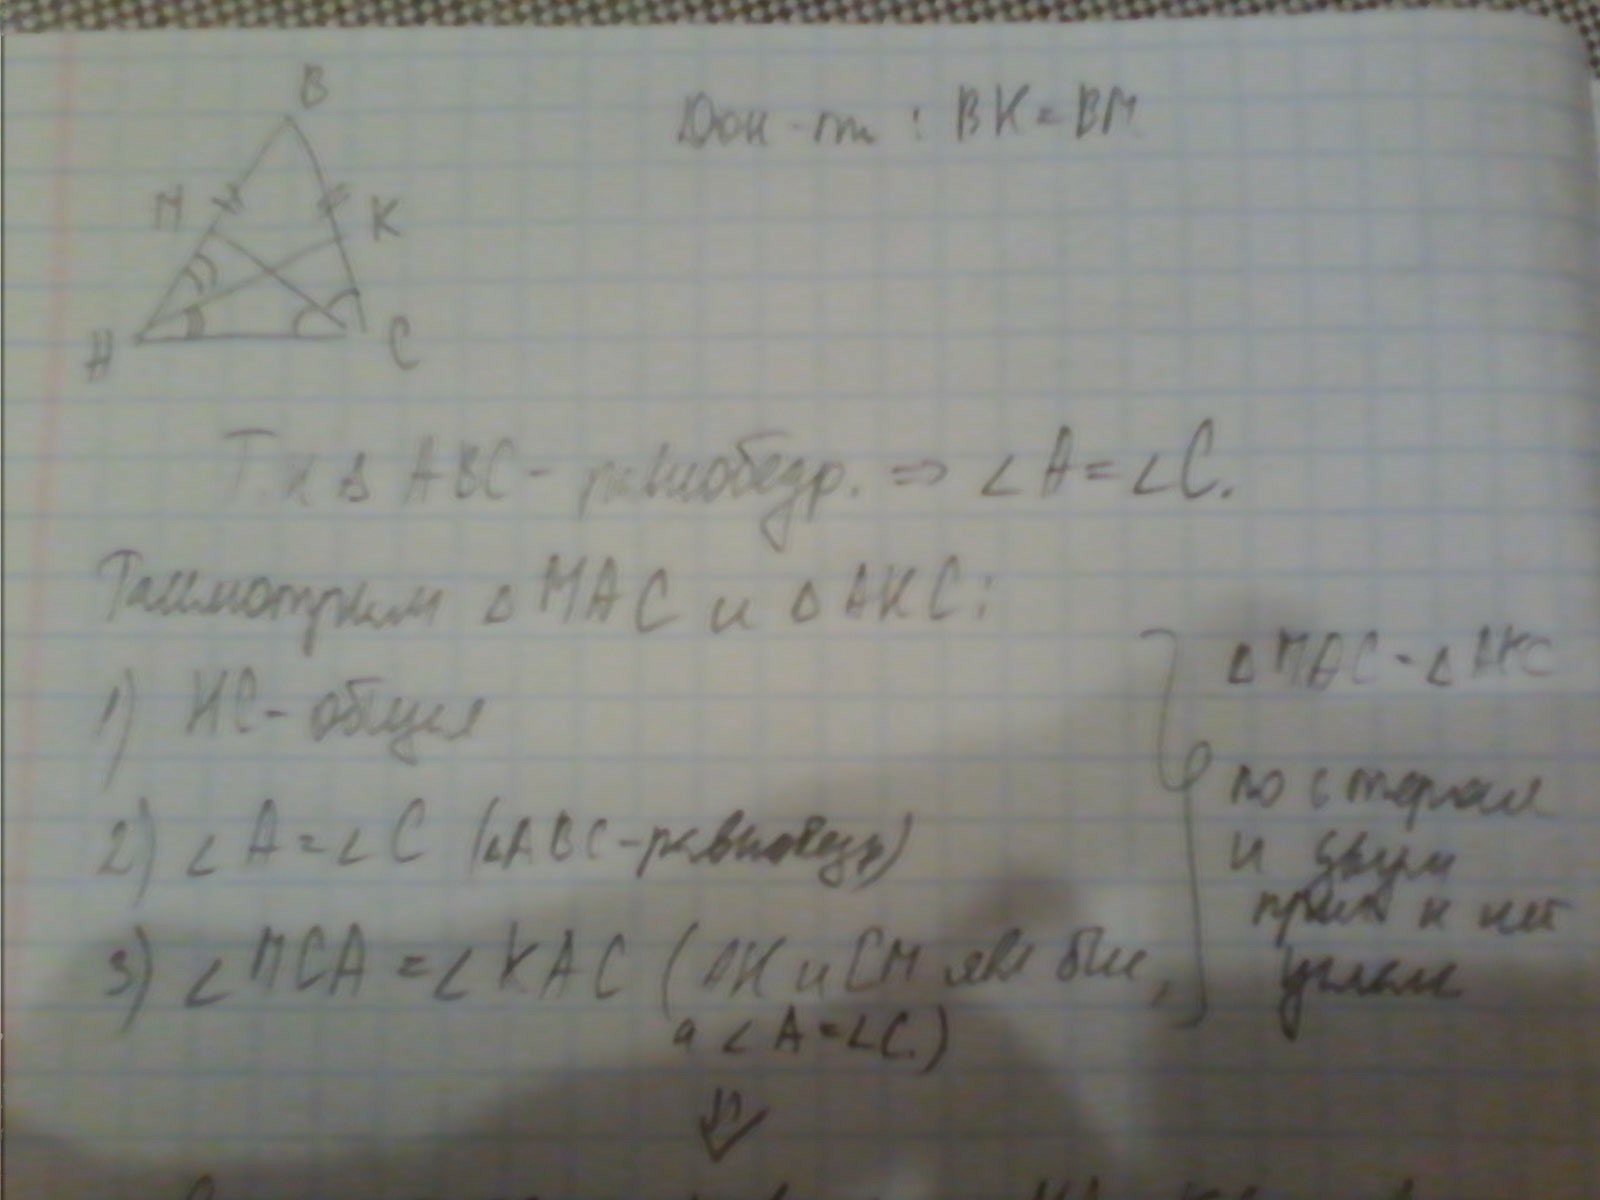 B
Док-ть : BK = BM
M
K
A
C
Т.к ∆ ABC - равнобедр. ⇒ ∠A = ∠C.
Рассмотрим ∆ MAC и ∆ AKC:
1) AC - общая
2) ∠A = ∠C (∆ABC - равнобедр)
3) ∠MCA = ∠KAC (AK и CM явл бис,
а ∠A = ∠C.)
∆ MAC = ∆ AKC
по сторон
и двум
прил к ней
углам